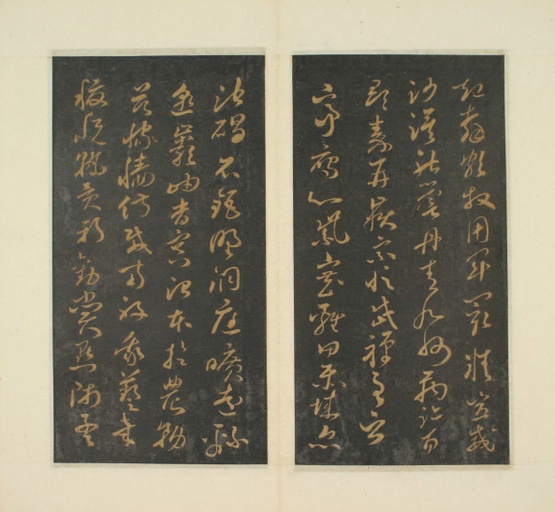 起翦頗牧用軍最精宣威
沙漠馳譽丹青九州禹跡百
郡秦并嶽宗恒岱禪主云
亭雁門紫塞雞田赤城昆
池碣石鉅野洞庭曠遠綿
邈巖岫杳冥治本於農務
茲稼穡俶載南畝我藝黍
稷稅熟貢新勸賞黜陟孟